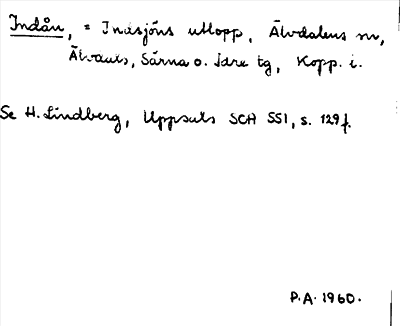 Indån, = Indsjöns utlopp, Älvdalens sn,
Älvdals, Särna o. Idre tg, Kopp. l.
Se H. Lindberg, Uppsats SCH 551, s. 129 f.
P.A. 1960.